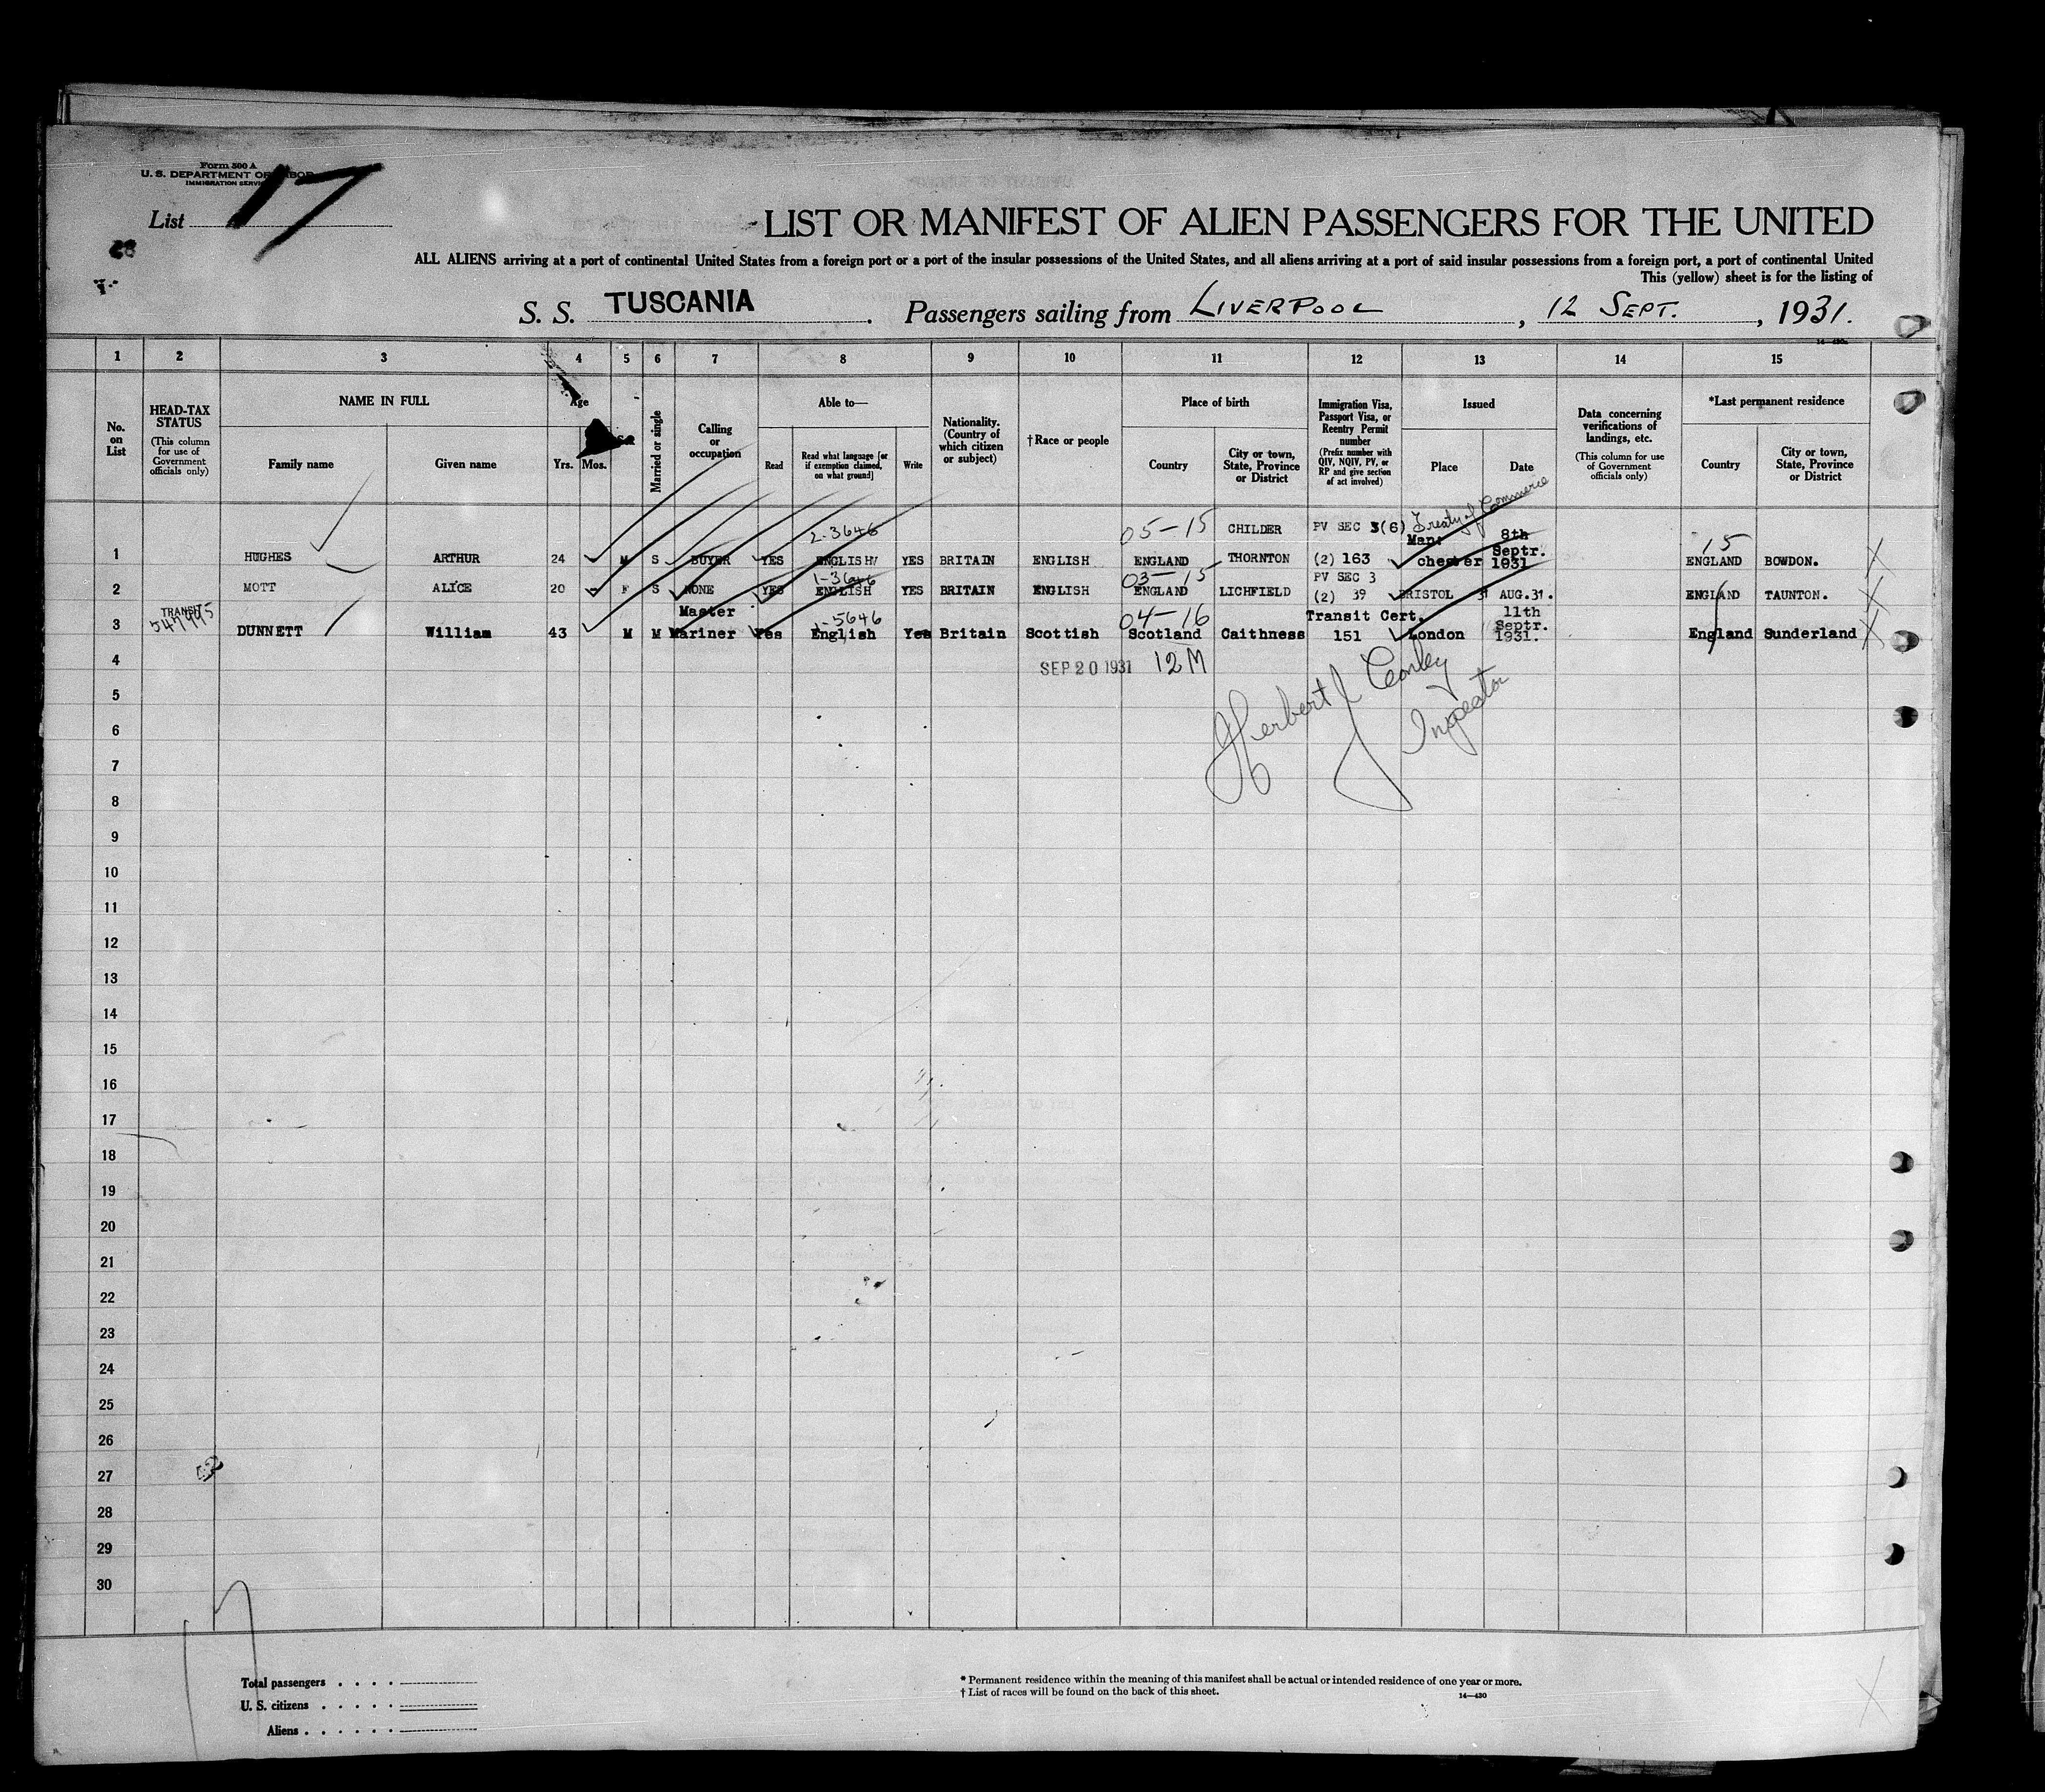 Form 500 A
U. S. DEPARTMENT OF LABOR
IMMIGRATION SERVICE
List 17
LIST OR MANIFEST OF ALIEN PASSENGERS FOR THE UNITED
ALL ALIENS arriving at a port of continental United States from a foreign port or a port of the insular possessions of the United States, and all aliens arriving at a port of said insular possessions from a foreign port, a port of continental United
This (yellow) sheet is for the listing of
S. S. TUSCANIA. Passengers sailing from LIVERPOOL, 12 SEPT., 1931.
1 2 3 4 5 6 7 8 9 10 11 12 13 14 15
No. on List
HEAD-TAX STATUS
(This column for use of Government officials only)
NAME IN FULL
Family name Given name
Age
Yrs. Mos.
Married or single
Calling or occupation
Able to—
Read
Read what language [or if exemption claimed, on what ground]
Write
Nationality. (Country of which citizen or subject)
†Race or people
Place of birth
Country
City or town, State, Province or District
Immigration Visa, Passport Visa, or Reentry Permit number
(Prefix number with QIV, NQIV, PV, or RP and give section of act involved)
Issued
Place Date
Data concerning verifications of landings, etc.
(This column for use of Government officials only)
*Last permanent residence
Country
City or town, State, Province or District
2-3646 05-15 CHILDER PV SEC 3(6) Treaty of Commerce Man: 8th Septr. 15
1 HUGHES ARTHUR 24 M S BUYER YES ENGLISH YES BRITAIN ENGLISH ENGLAND THORNTON (2) 163 chester 1931 ENGLAND BOWDON. X
1-3646 03-15 PV SEC 3
2 MOTT ALICE 20 - F S NONE YES ENGLISH YES BRITAIN ENGLISH ENGLAND LICHFIELD (2) 39 BRISTOL AUG.31. ENGLAND TAUNTON. X
TRANSIT Master 1-5646 04-16 Transit Cert. 11th Septr.
3 DUNNETT William 43 M M Mariner Yes English Yes Britain Scottish Scotland Caithness 151 London 1931. England Sunderland X
4 SEP 20 1931 12M
Herbert J Conley
Inspector
5
6
7
8
9
10
11
12
13
14
15
16
17
18
19
20
21
22
23
24
25
26
27
28
29
30
Total passengers . . . .
U. S. citizens . . . . .
Aliens . . . . . .
* Permanent residence within the meaning of this manifest shall be actual or intended residence of one year or more.
† List of races will be found on the back of this sheet.
14—430